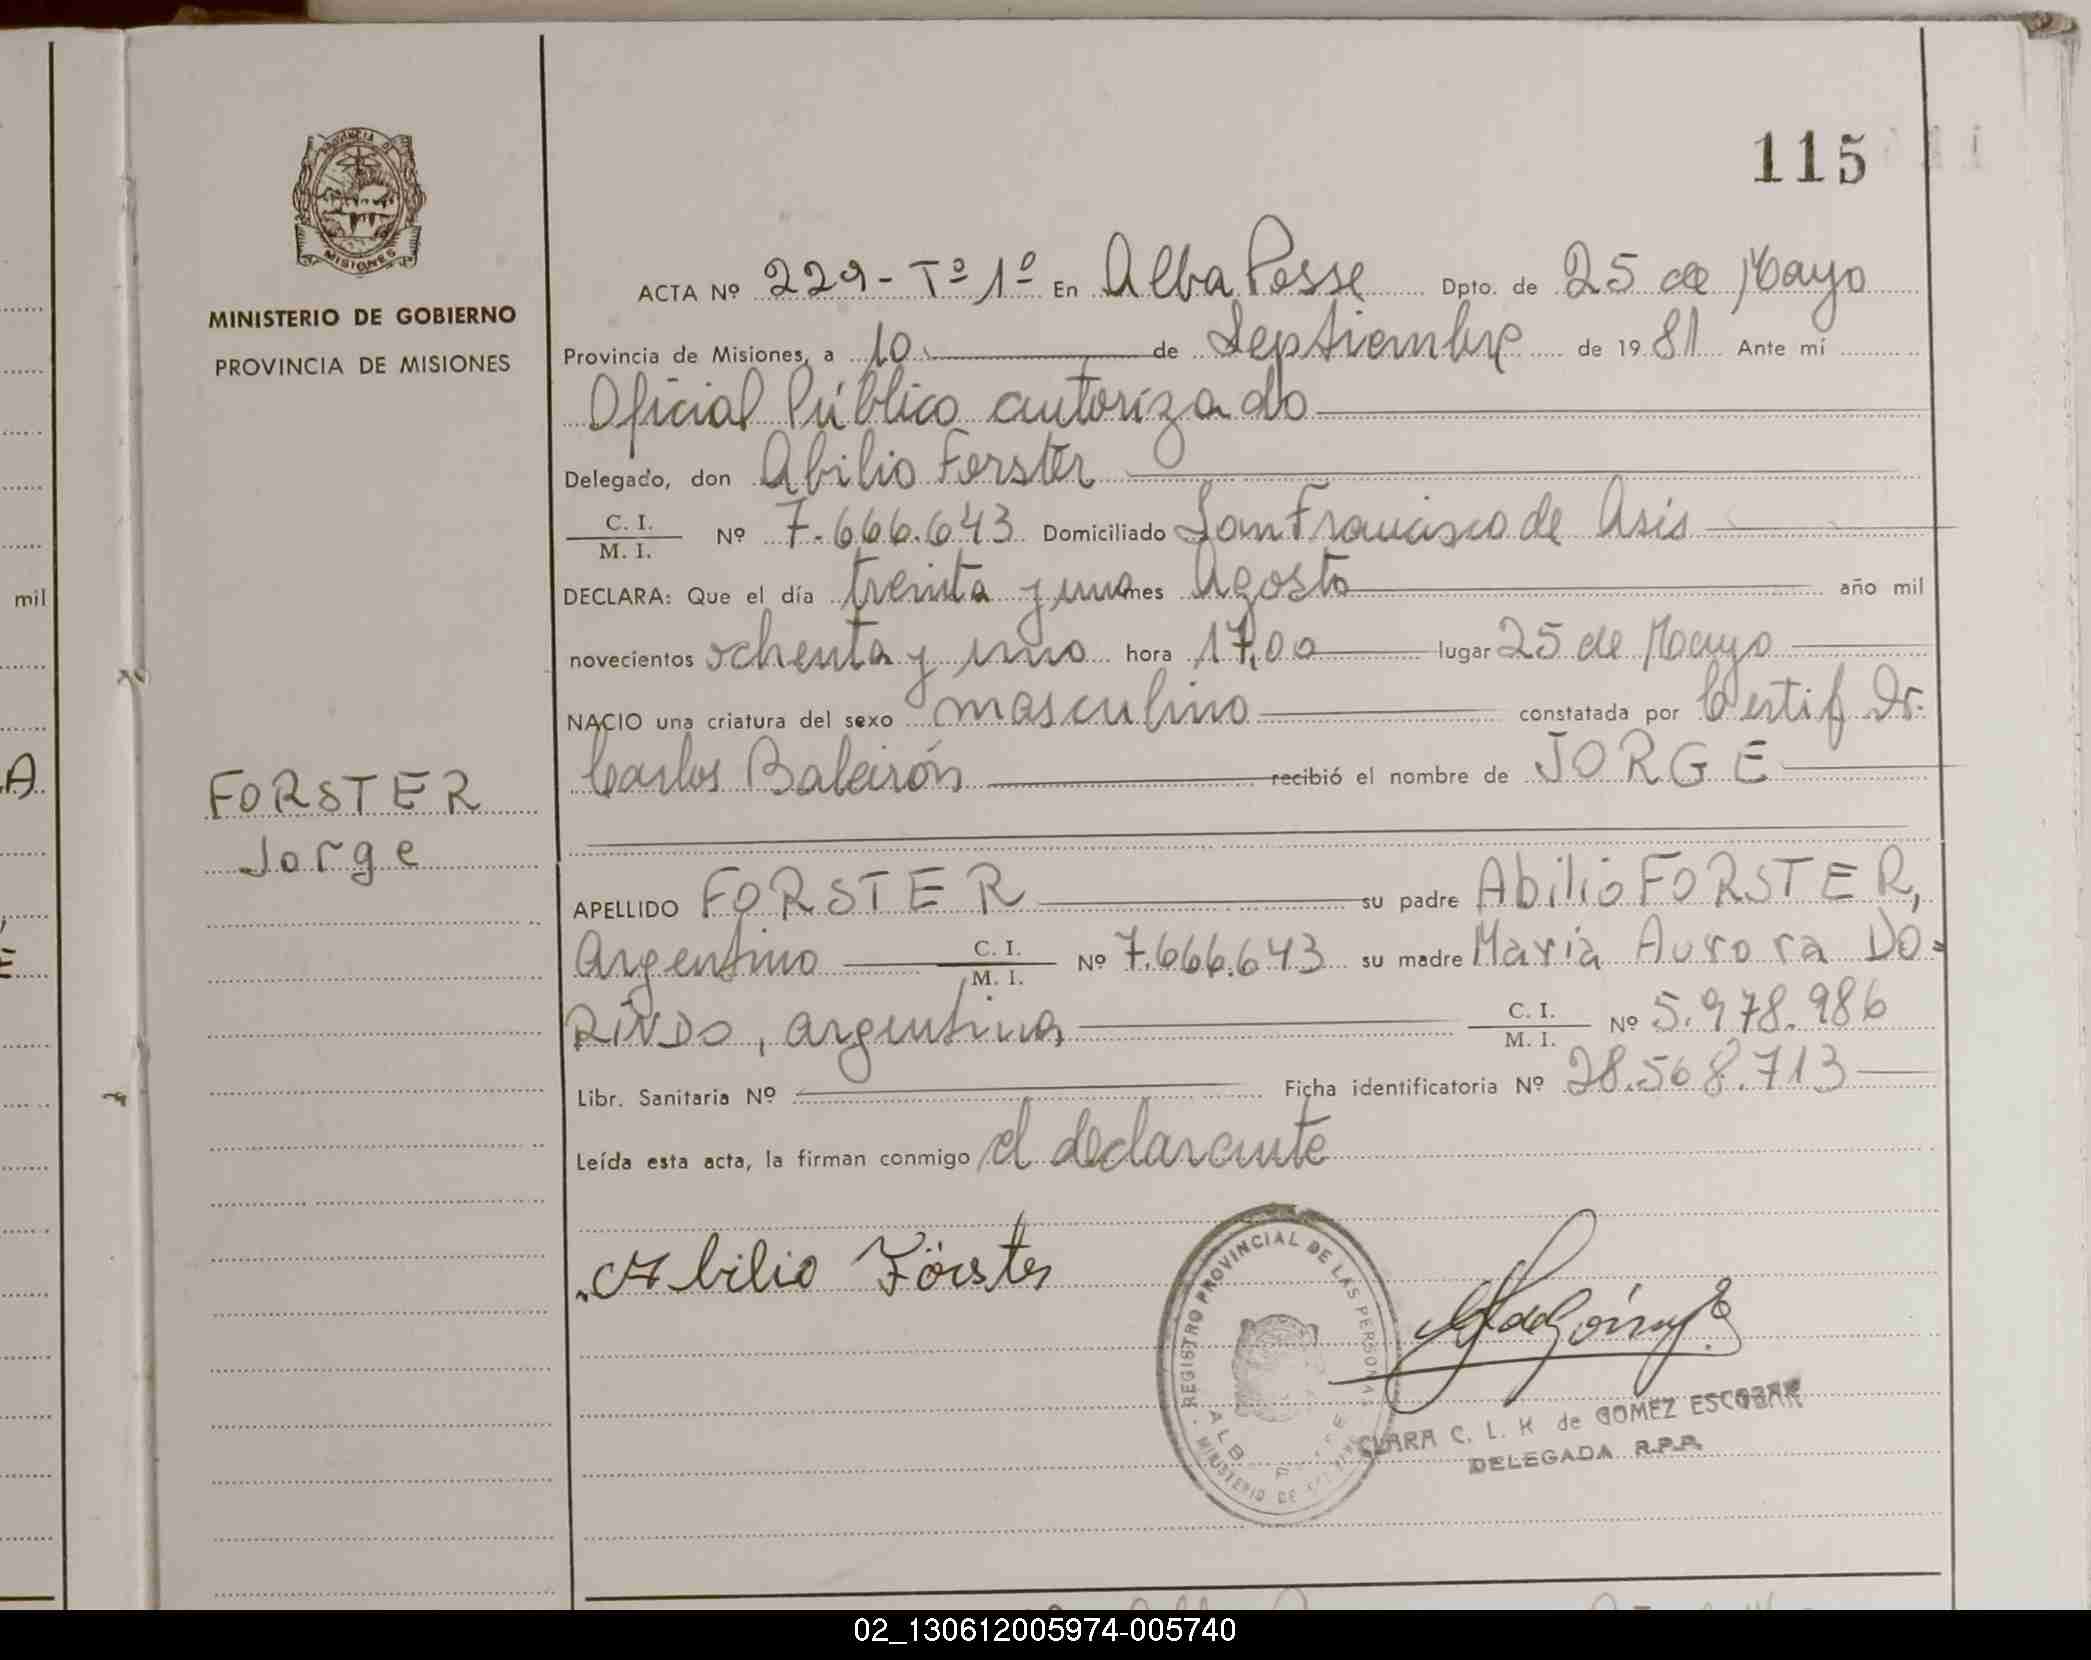 115
PROVINCIA DE
MISIONES
MINISTERIO DE GOBIERNO
PROVINCIA DE MISIONES
FORSTER
Jorge
mil
A
ACTA Nº 229 - Tº 1º En Alba Posse Dpto. de 25 de Mayo
Provincia de Misiones, a 10 de Septiembre de 1981 Ante mí
Oficial Público autorizado
Delegado, don Abilio Forster
C. I.
M. I. Nº 7.666.643 Domiciliado San Francisco de Asis
DECLARA: Que el día treinta y uno mes Agosto año mil
novecientos ochenta y uno hora 17,00 lugar 25 de Mayo
NACIO una criatura del sexo masculino constatada por Certif Dr.
Carlos Baleirón recibió el nombre de JORGE
APELLIDO FORSTER su padre Abilio FORSTER,
Argentino C. I. M. I. Nº 7.666.643 su madre María Aurora DO=
RINDO, argentina C. I. M. I. Nº 5.978.986
Libr. Sanitaria Nº Ficha identificatoria Nº 28.568.713
Leída esta acta, la firman conmigo el declarante
Abilio Förster
REGISTRO PROVINCIAL DE LAS PERSONAS
MINISTERIO DE
CLARA C. L. K de GOMEZ ESCOBAR
DELEGADA R.P.P.
02_130612005974-005740